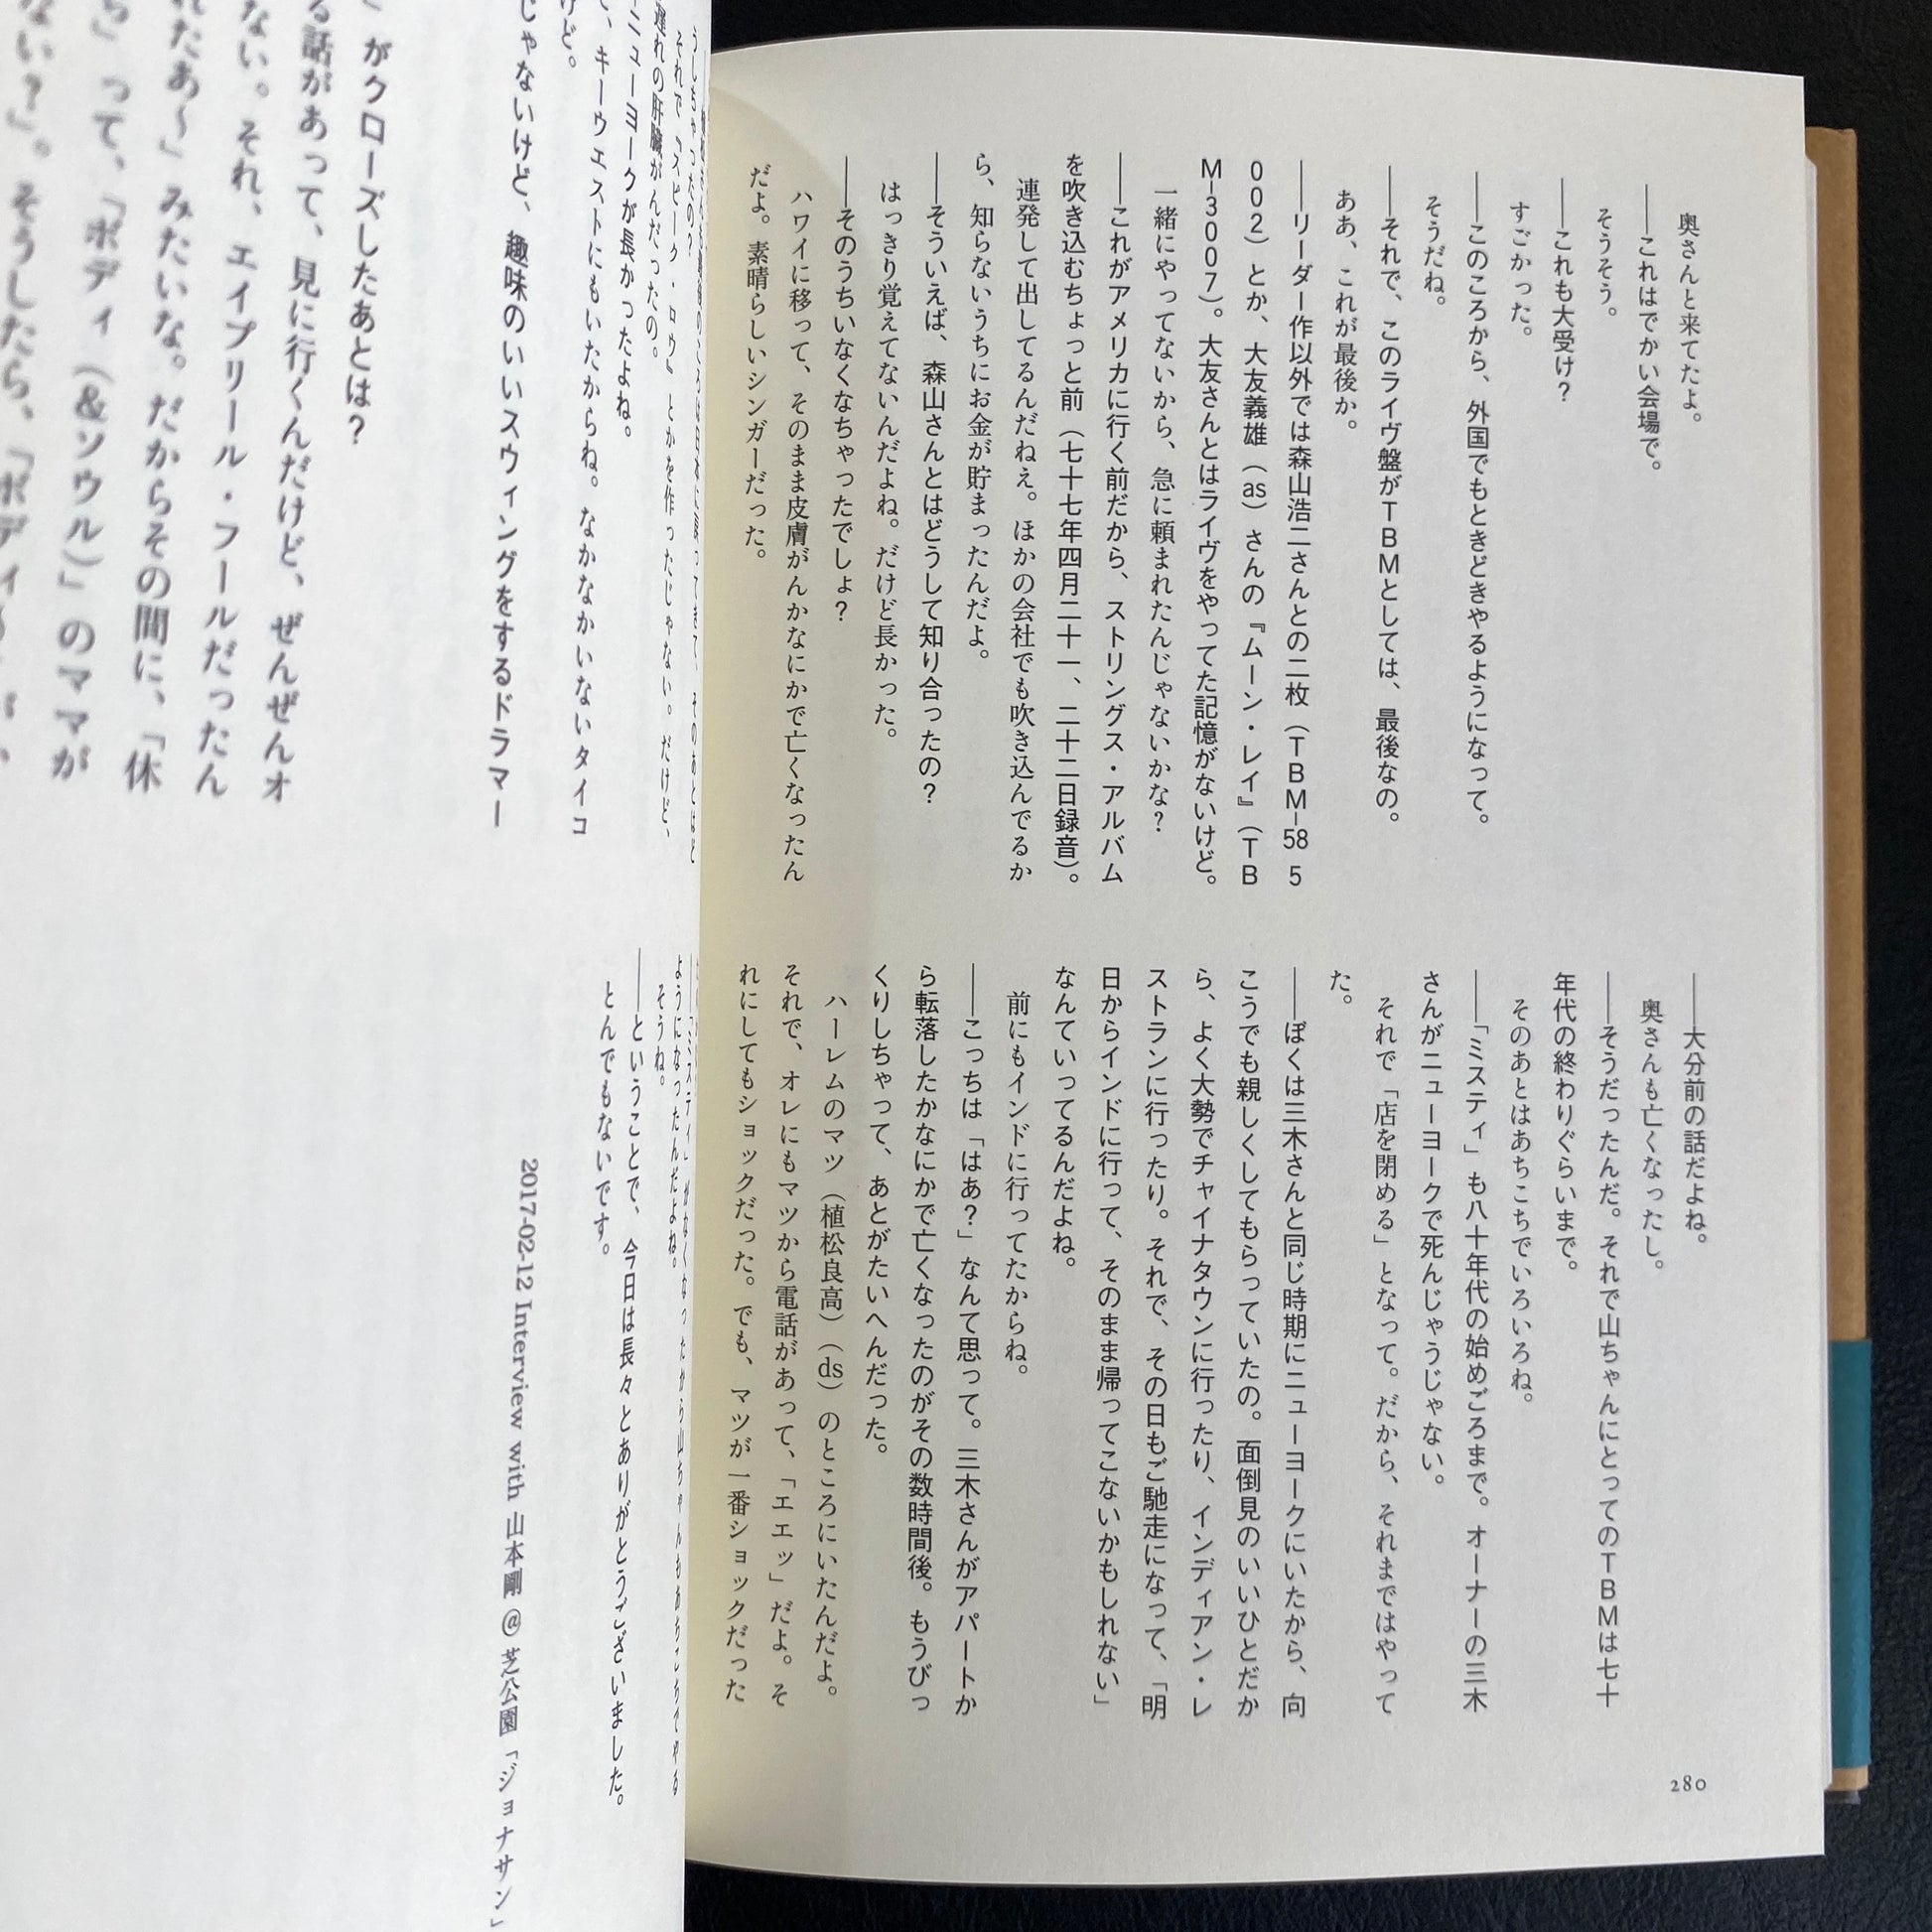 奥さんと来てたよ。
――これはでかい会場で。
そうそう。
――これも大受け？
すごかった。
――このころから、外国でもときどきやるようになって。
そうだね。
――それで、このライヴ盤がＴＢＭとしては、最後なの。
ああ、これが最後か。
――リーダー作以外では森山浩二さんとの二枚（ＴＢＭ–58 5
002）とか、大友義雄（as）さんの『ムーン・レイ』（ＴＢ
Ｍ–3007）。大友さんとはライヴをやってた記憶がないけど。
一緒にやってないから、急に頼まれたんじゃないかな？
――これがアメリカに行く前だから、ストリングス・アルバム
を吹き込むちょっと前（七十七年四月二十一、二十二日録音）。
連発して出してるんだねえ。ほかの会社でも吹き込んでるか
ら、知らないうちにお金が貯まったんだよ。
――そういえば、森山さんとはどうして知り合ったの？
はっきり覚えてないんだよね。だけど長かった。
――そのうちいなくなちゃったでしょ？
ハワイに移って、そのまま皮膚がんかなにかで亡くなったん
だよ。素晴らしいシンガーだった。
――大分前の話だよね。
奥さんも亡くなったし。
――そうだったんだ。それで山ちゃんにとってのＴＢＭは七十
年代の終わりぐらいまで。
そのあとはあちこちでいろいろね。
――「ミスティ」も八十年代の始めごろまで。オーナーの三木
さんがニューヨークで死んじゃうじゃない。
それで「店を閉める」となって。だから、それまではやって
た。
――ぼくは三木さんと同じ時期にニューヨークにいたから、向
こうでも親しくしてもらっていたの。面倒見のいいひとだか
ら、よく大勢でチャイナタウンに行ったり、インディアン・レ
ストランに行ったり。それで、その日もご馳走になって、「明
日からインドに行って、そのまま帰ってこないかもしれない」
なんていってるんだよね。
前にもインドに行ってたからね。
――こっちは「はあ？」なんて思って。三木さんがアパートか
ら転落したかなにかで亡くなったのがその数時間後。もうびっ
くりしちゃって、あとがたいへんだった。
ハーレムのマツ（植松良高）（ds）のところにいたんだよ。
それで、オレにもマツから電話があって、「エエッ」だよ。そ
れにしてもショックだった。でも、マツが一番ショックだった
280
うしちゃったの？
それで『スピーク・ロウ』とかを作ったじゃない。だけど、
遅れの肝臓がんだったの。
ニューヨークが長かったよね。
、キーウエストにもいたからね。なかなかいないタイコ
けど。
じゃないけど、趣味のいいスウィングをするドラマー
がクローズしたあとは？
る話があって、見に行くんだけど、ぜんぜんオ
ない。それ、エイプリール・フールだったん
れたあ〜」みたいな。だからその間に、「休
」って、「ボディ（&ソウル）」のママが
ない？」。そうしたら、「ボディ
――「ミスティ」がなくなったから山ちゃんもあちこちでやる
ようになったんだよね。
そうね。
――ということで、今日は長々とありがとうございました。
とんでもないです。
2017-02-12 Interview with 山本剛 @ 芝公園「ジョナサン」